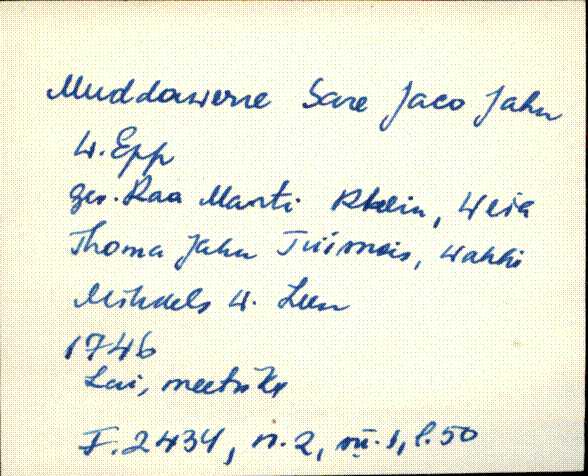 Muddawerre Sare Jaco Jahn
W. Epp
ges. Raa Marti Rhein, Weia
Thoma Jahn Tuimois, Wahhi
Mihkels W. Leen
1746
Lai, meetrika
F. 2434, n. 2, sü. 1, l. 50